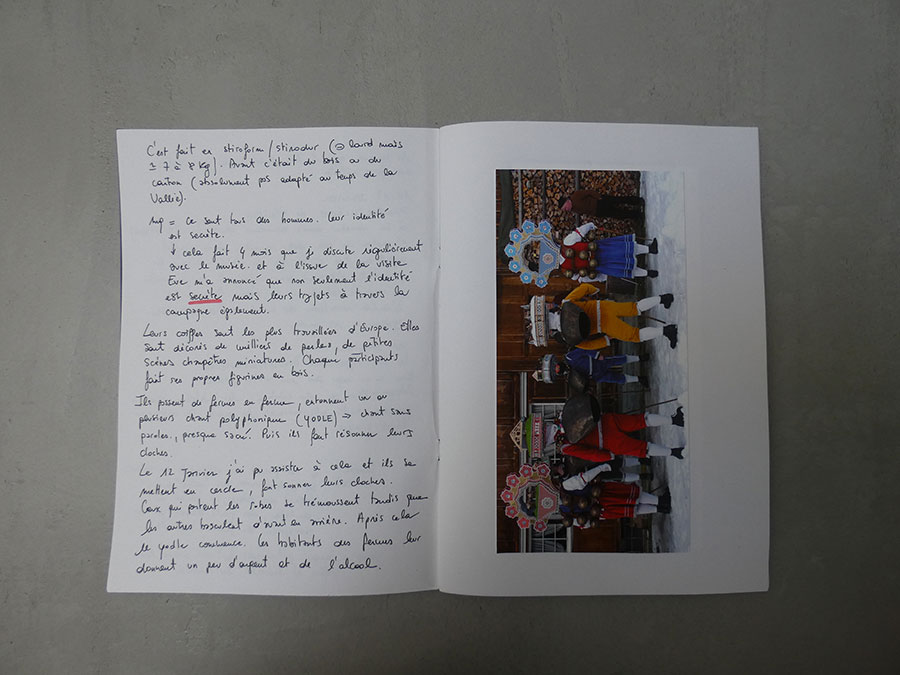 C'est fait en stiroform/stirodur (⊖ lourd mais
≃ 7 à 8 kg). Avant c'était du bois ou du
carton (absolument pas adapté au temps de la
Vallée).
= ce sont tous des hommes. leur identité
est secrète.
↓ cela fait 4 mois que je discute régulièrement
avec le musée. et à l'issue de la visite
Eve m'a annoncé que non seulement l'identité
est secrète mais leurs trajets à travers la
campagne également.
Leurs coiffes sont les plus travaillées d'Europe. Elles
sont décorés de milliers de perles, de petites
scènes champêtres miniatures. Chaque participants
fait ses propres figurines en bois.
Ils passent de fermes en ferme, entonnent un ou
plusieurs chant polyphonique (YODLE) → chant sans
paroles, presque sacré. Puis ils font résonner leurs
cloches.
Le 12 Janvier j'ai pu assister à cela et ils se
mettent en cercle, font sonner leurs cloches.
Ceux qui portent les robes se trémoussent tandis que
les autres basculent d'avant en arrière. Après cela
le yodle commence. Les habitants des fermes leur
donnent un peu d'argent et de l'alcool.